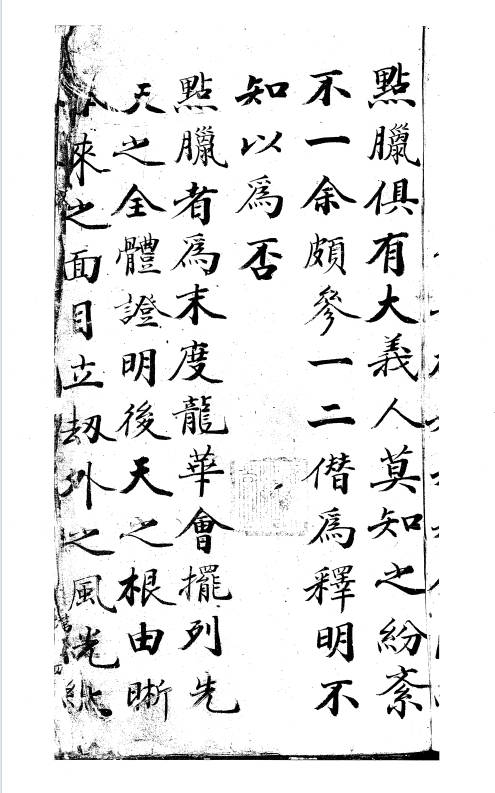 點臘俱有大義人莫知之紛紊
不一余頗參一二僭為釋明不
知以為否
點臘者為末度龍華會擺列先
天之全體證明後天之根由晰
來之面目立劫外之風光